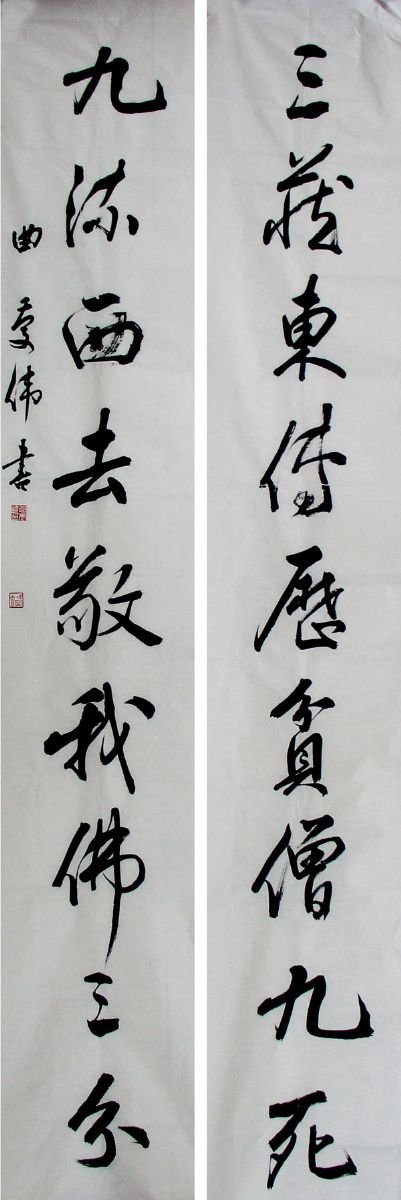 三藏東傳歷貧僧九死
九流西去敬我佛三分
曲慶伟書